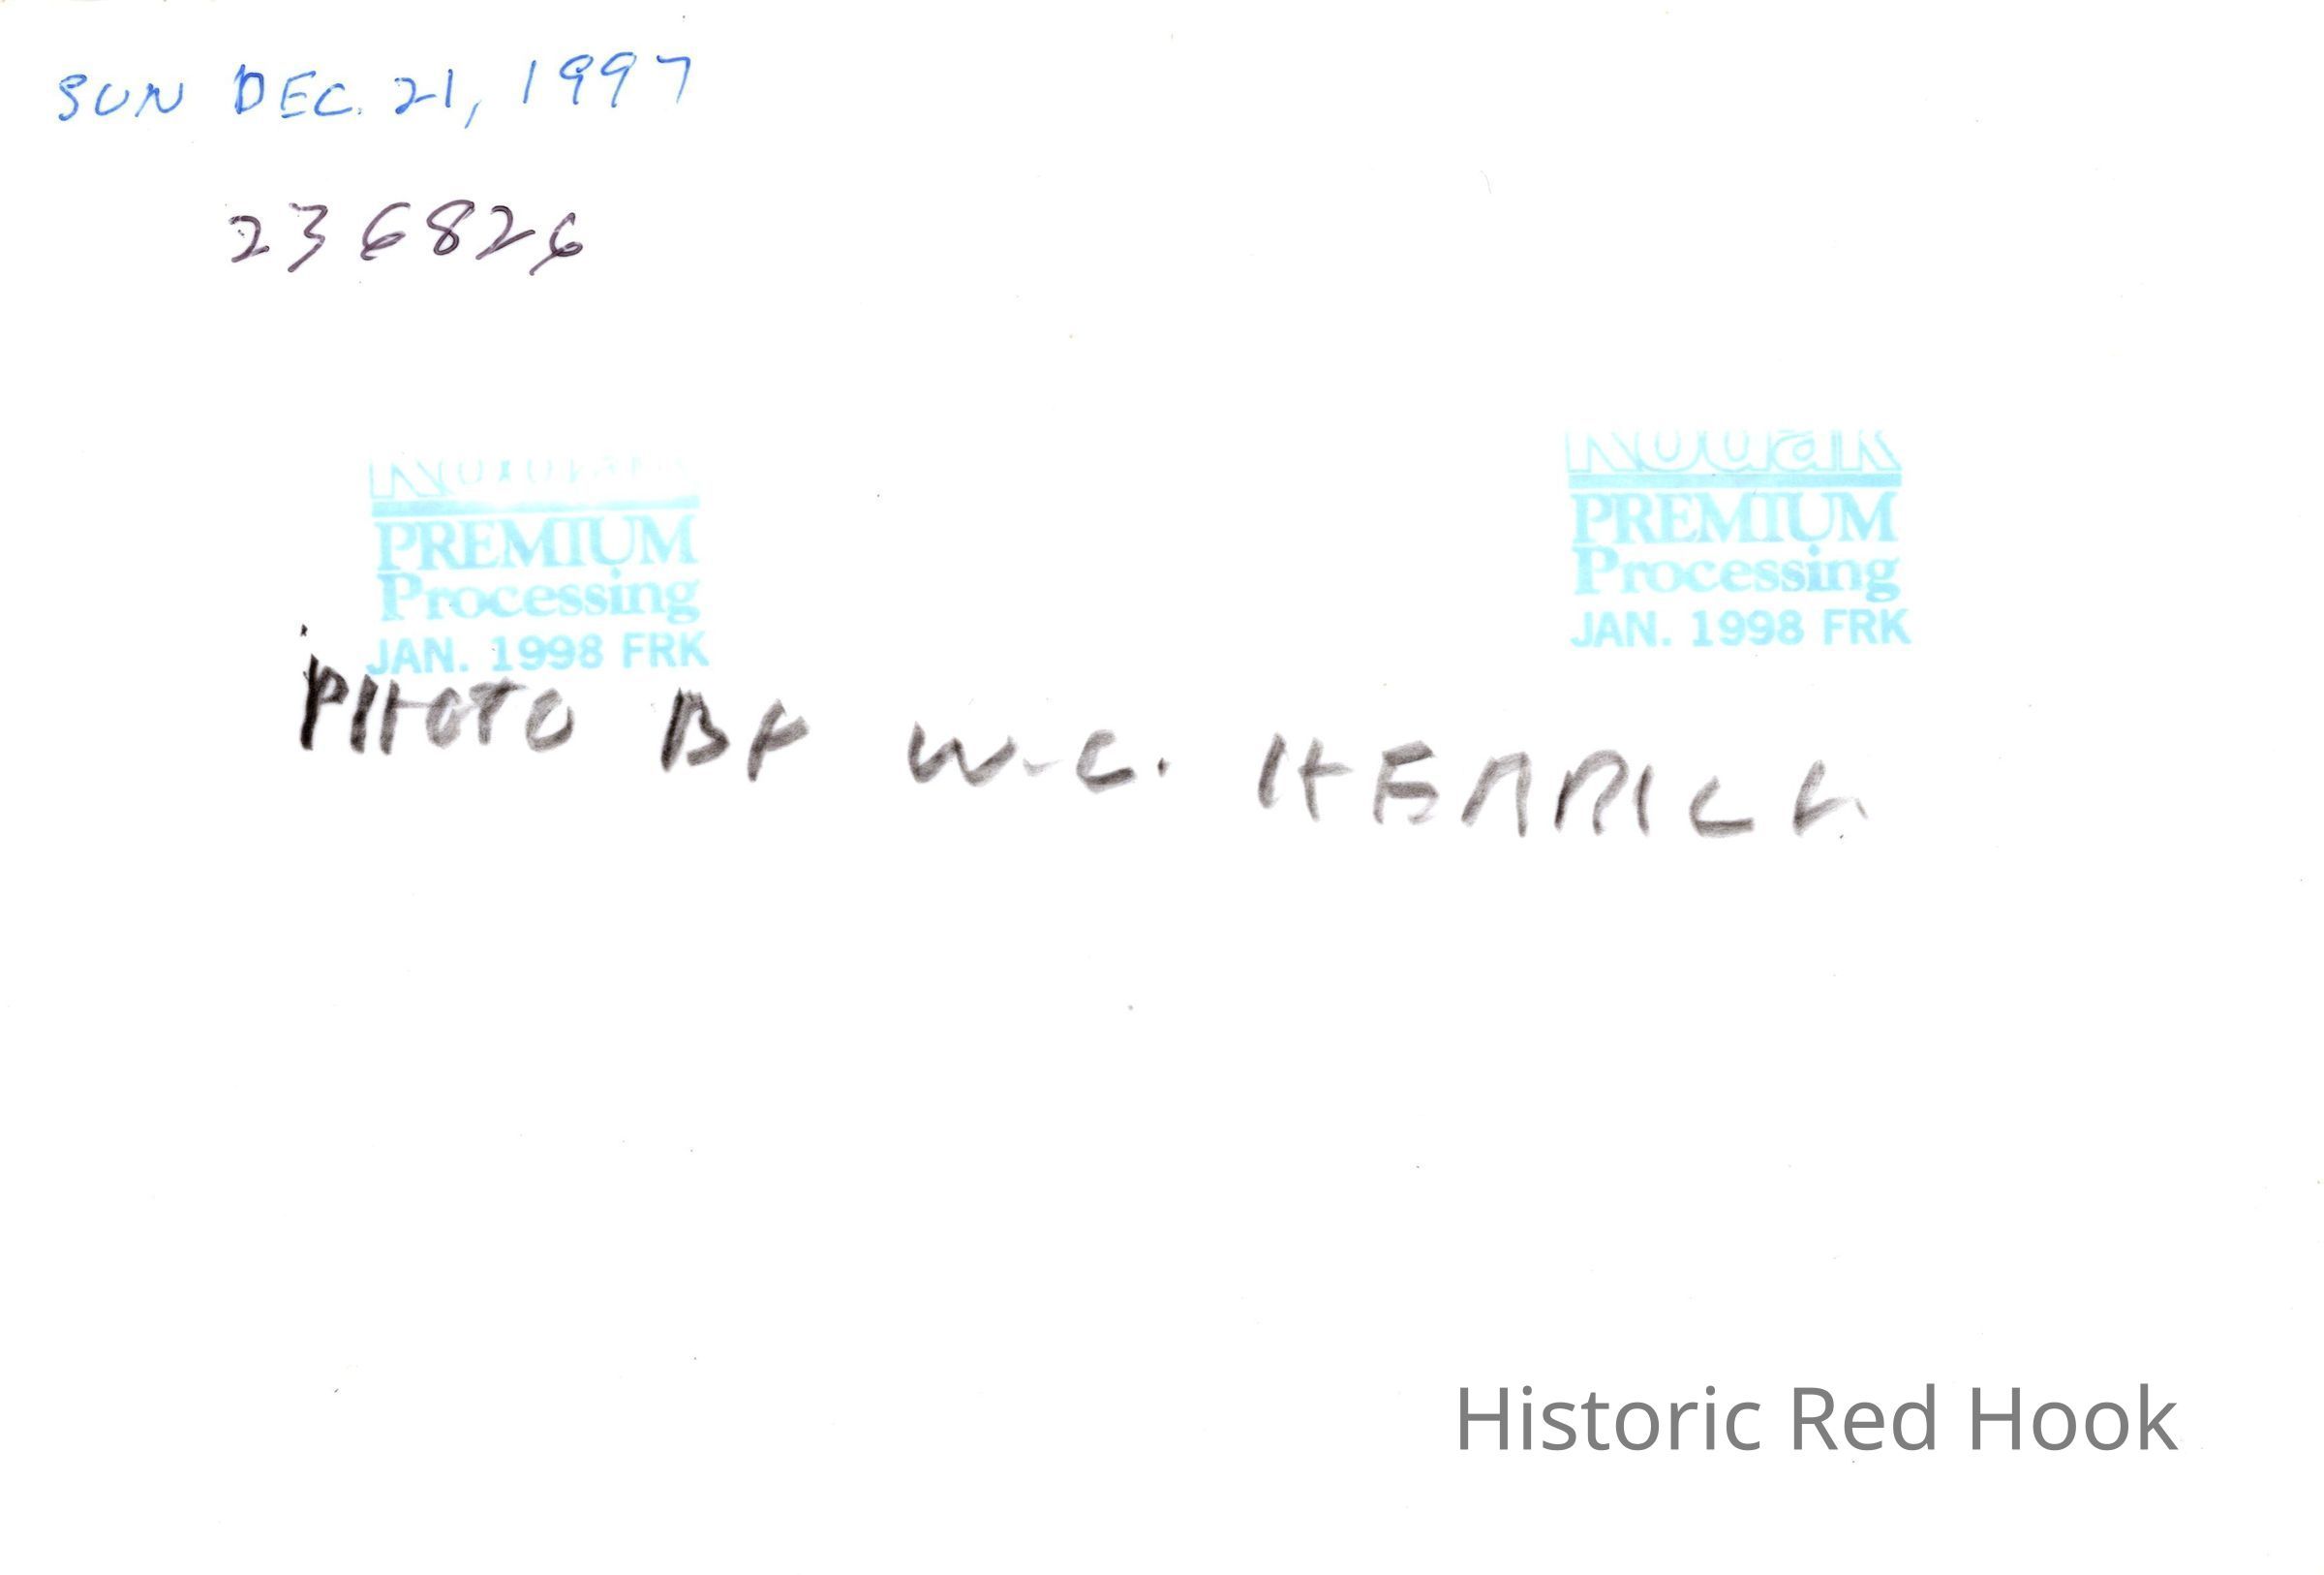 SUN DEC. 21, 1997
236826
Kodak
PREMIUM
Processing
JAN. 1998 FRK
Kodak
PREMIUM
Processing
JAN. 1998 FRK
PHOTO BY W.C. HERRICK
Historic Red Hook